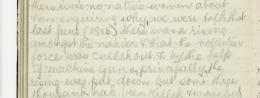 there were no native women about
& on enquiring why, we were told that
last June (1915) there was a rising
amongst the natives & that the volunteer
force was called out & by the help
of machine guns principally, the
rising was put down but some three
thousand had been killed